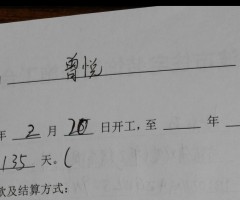 曾悦
年 2 月 20 日开工,至____年
135 天。(
款及结算方式: